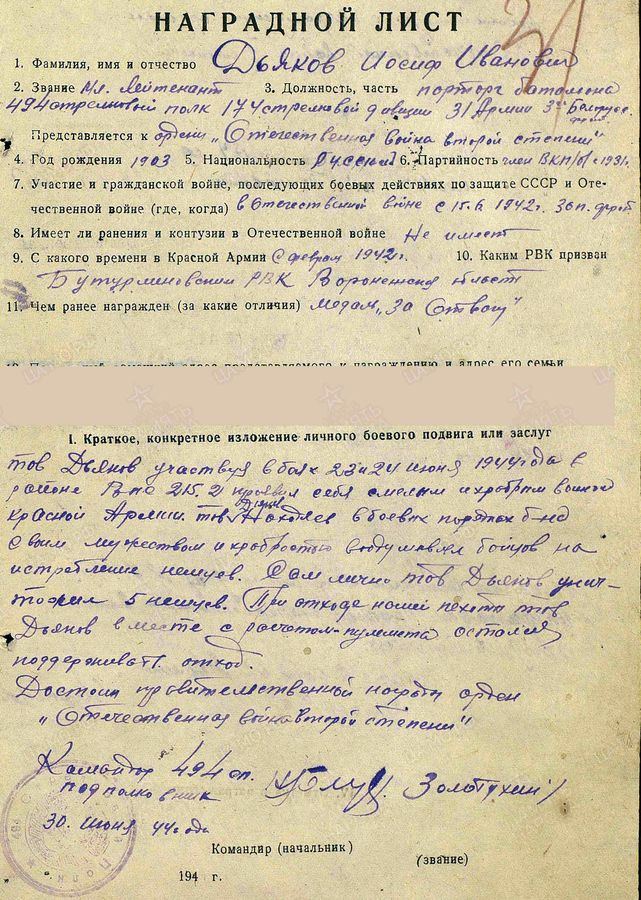 НАГРАДНОЙ ЛИСТ
1. Фамилия, имя и отчество Дьяков Иосиф Иванович
2. Звание Мл. лейтенант 3. Должность, часть парторг батальона
494 стрелковый полк 174 стрелковой дивизии 31 Армии 3го Белорус.
Представляется к ордену „Отечественная война второй степени"
4. Год рождения 1903 5. Национальность Русский 6. Партийность член ВКП/б/ с 1931г.
7. Участие и гражданской войне, последующих боевых действиях по защите СССР и Оте-
чественной войне (где, когда) в Отечественной войне с 15.6 1942г. Зап. фронт
8. Имеет ли ранения и контузии в Отечественной войне Не имеет
9. С какого времени в Красной Армии с февраля 1942г. 10. Каким РВК призван
Бутурлиновским РВК Воронежской области
11. Чем ранее награжден (за какие отличия) Медаль „За Отвагу"
I. Краткое, конкретное изложение личного боевого подвига или заслуг
тов Дьяков участвуя в боях 23 и 24 июня 1944 года в
районе 215.2 проявил себя смелым и храбрым воином
Красной Армии. тов Дьяков Находясь в боевых порядках б-на
своим мужеством и храбростью воодушевлял бойцов на
истребление немцев. Сам лично тов Дьяков унич-
тожил 5 немцев. При отходе нашей пехоты тов
Дьяков вместе с расчетом пулемета остался
поддерживать отход.
Достоин правительственной награды орден
„Отечественная война второй степени"
Командир 494 сп.
подполковник Золотухин
30 июня 44 года
Командир (начальник)
(звание)
194 г.